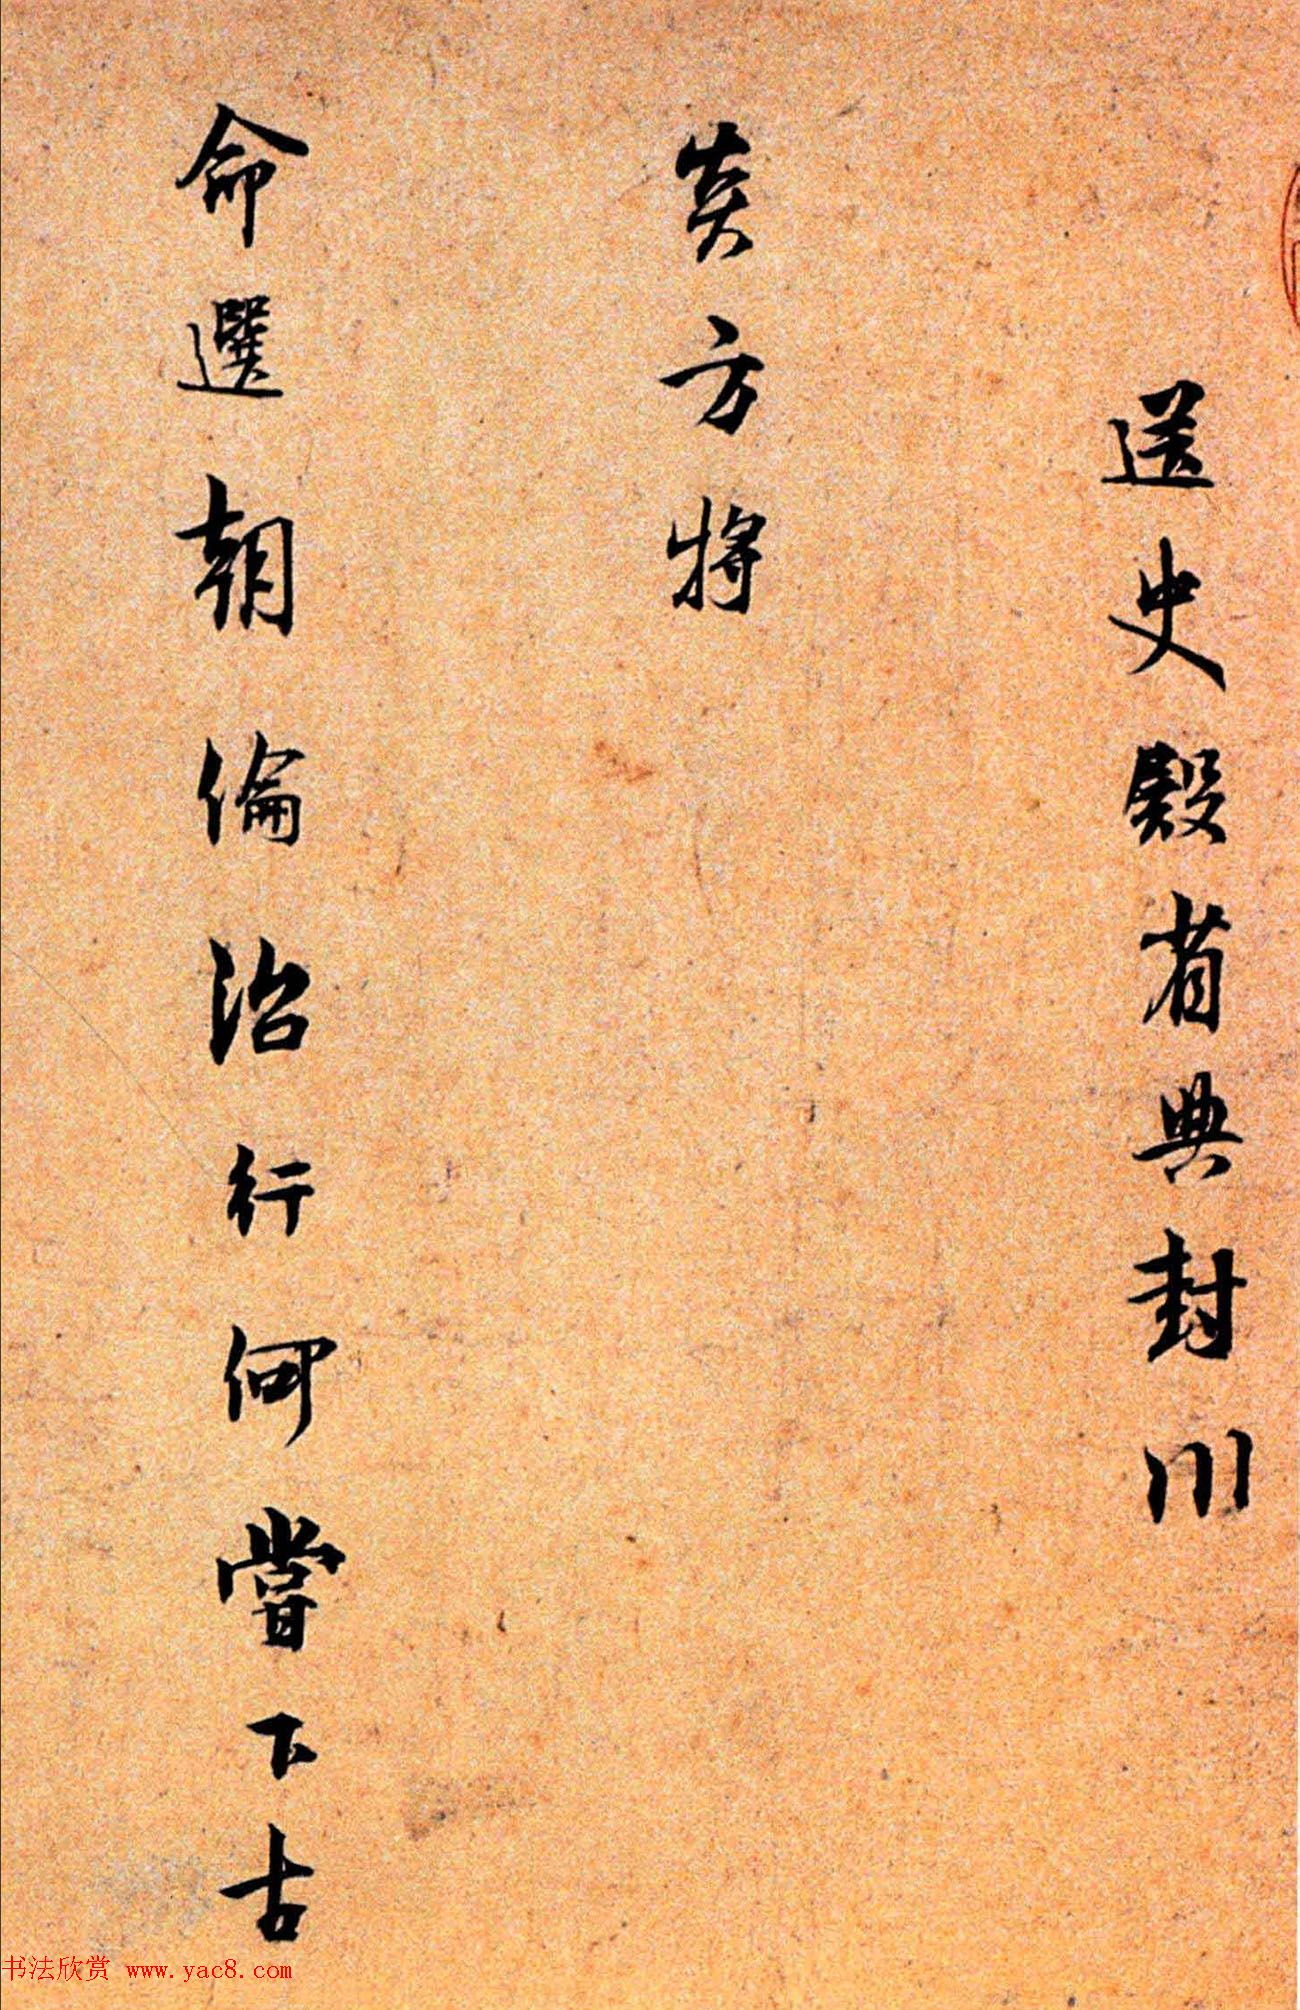 送史殿省典封川
炎方将
命選朝倫治行何嘗下古
书法欣赏 www.yac8.com